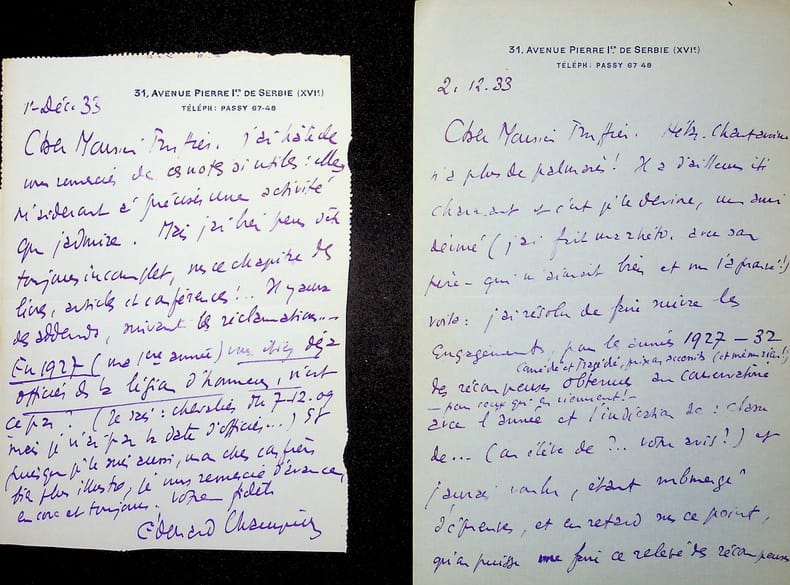 31, AVENUE PIERRE Ier DE SERBIE (XVIe)
TÉLÉPH: PASSY 67-48
1er Déc. 33
Cher Monsieur Truffier. J'ai hâte de
vous remercier de ces notes si utiles: elles
m'aideront à préciser une activité
que j'admire. Mais j'ai bien peur d'être
toujours incomplet, sur ce chapitre des
livres, articles et conférences!.. Il y aura
des addenda, suivant les réclamations...
En 1927 (ma 1ère année) vous étiez déjà
officier de la légion d'honneur, n'est
ce pas? (Je sais: chevalier du 7-12.09
mais je n'ai pas la date d'officier...) Et
puisque je le suis aussi, mon cher confrère
bien plus illustre, je vous remercie d'avance,
encore et toujours. Votre fidèle
Edouard Champion
31, AVENUE PIERRE Ier DE SERBIE (XVIe)
TÉLÉPH: PASSY 67-48
2. 12. 33
Cher Monsieur Truffier. Hélas. Chantavoine
n'a plus de palmarès! Il a d'ailleurs été
charmant et c'est que je devine, un ami
dévoué (j'ai fait ma rhéto. avec son
père - qui m'aimait bien et m'a
voila: j'ai résolu de faire suivre les
Engagements, pour les années 1927-32
Comédie et Tragédie, prix, accessits
des récompenses obtenues au conservatoire
- pour ceux qui en viennent! -
avec l'année et l'indication de: classe
de... (ou élève de?.. votre avis!) et
j'aurais voulu, étant submergé
d'épreuves, et en retard sur ce point,
qu'on puisse me faire ce relevé des récompenses